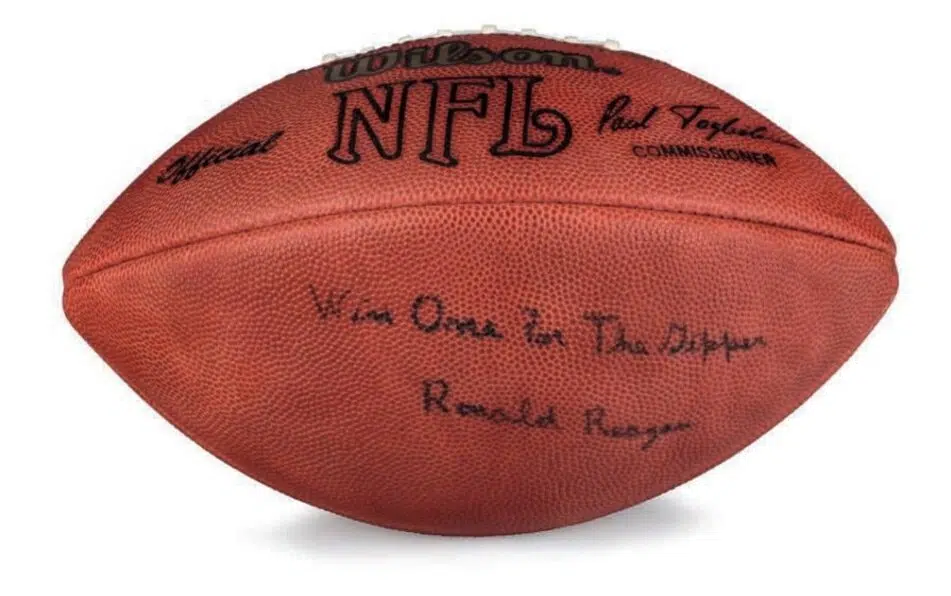 Wilson
NFL
Official
Paul Tagliabue
COMMISSIONER
Win One For The Gipper
Ronald Reagan